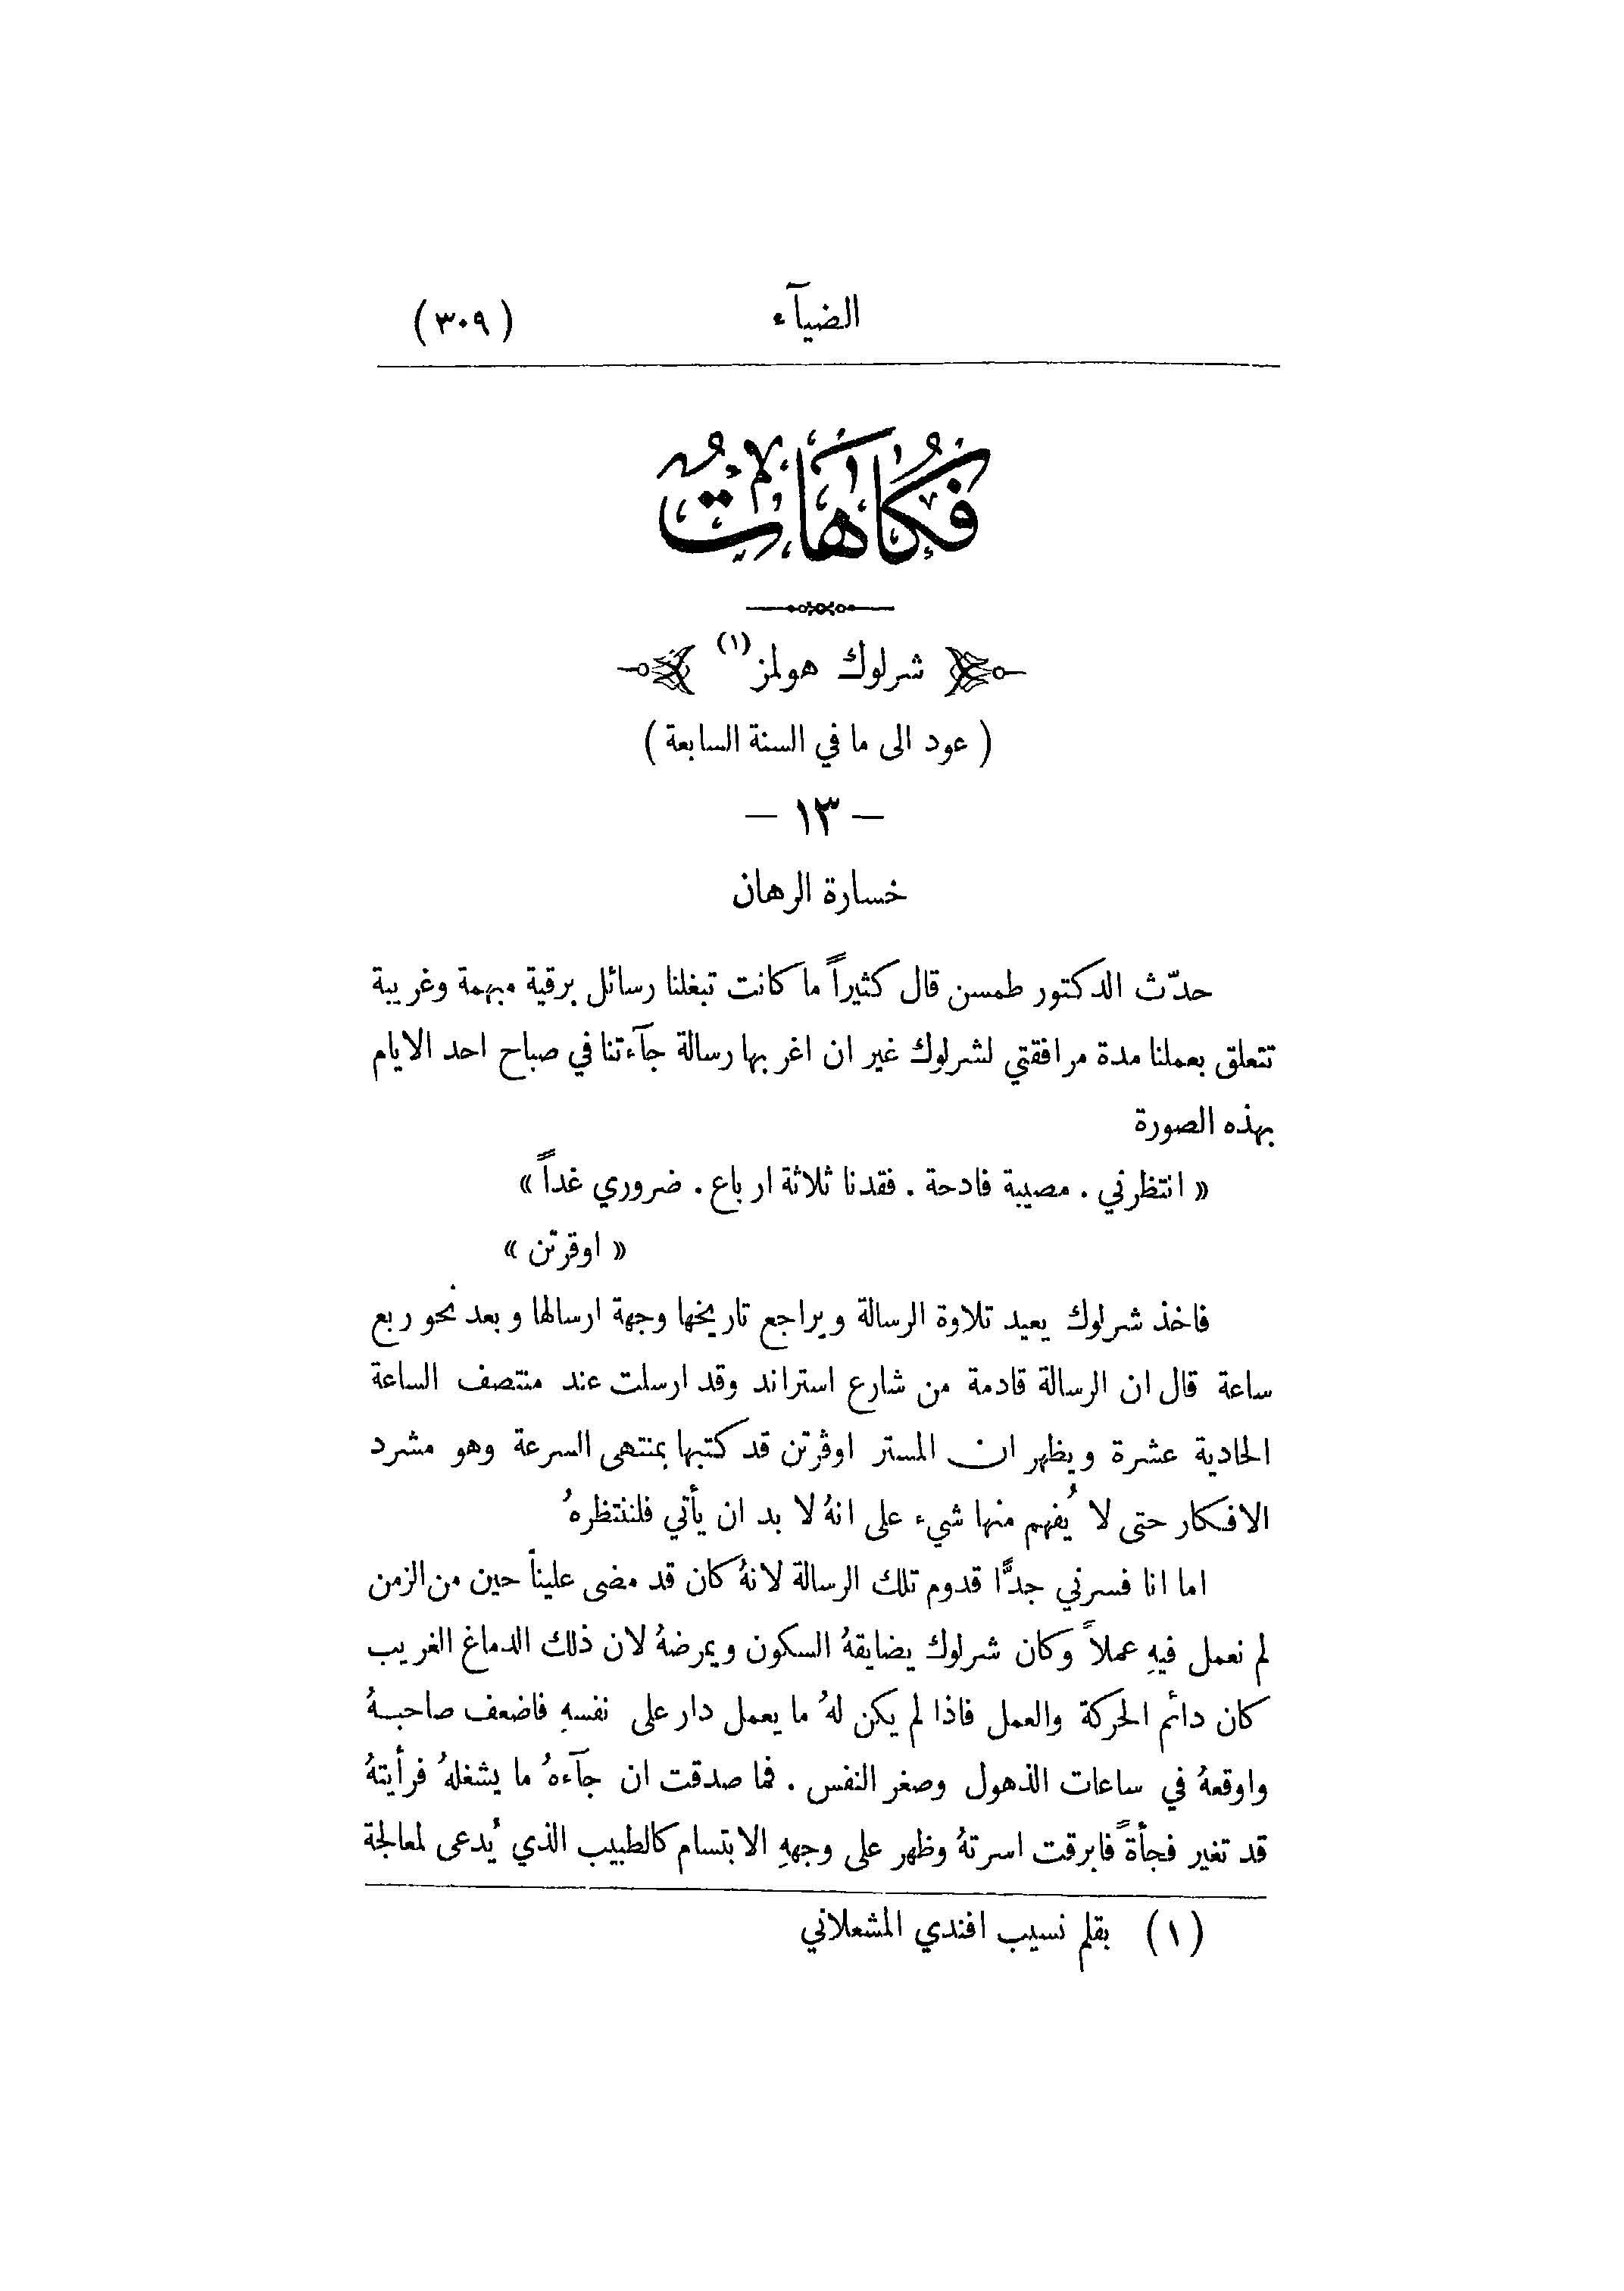 الضيآء
(٣٠٩)
فكاهات
شرلوك هولمز (١)
( عود الى ما في السنة السابعة )
– ١٣ –
خسارة الرهان
حدّث الدكتور طمسن قال كثيراً ما كانت تبغلنا رسائل برقية مبهمة وغريبة
تتعلق بعملنا مدة مرافقتي لشرلوك غير ان اغربها رسالة جآءتنا في صباح احد الايام
بهذه الصورة
« انتظرني . مصيبة فادحة . فقدنا ثلاثة ارباع . ضروري غداً »
« اوقرتن »
فاخذ شرلوك يعيد تلاوة الرسالة ويراجع تاريخها وجهة ارسالها وبعد نحو ربع
ساعة قال ان الرسالة قادمة من شارع استراند وقد ارسلت عند منتصف الساعة
الحادية عشرة ويظهر ان المستر اوڤرتن قد كتبها بمنتهى السرعة وهو مشرد
الافكار حتى لا يُفهم منها شيء على انهُ لا بد ان يأتي فلننتظرهُ
اما انا فسرني جدًّا قدوم تلك الرسالة لانهُ كان قد مضى علينا حين من الزمن
لم نعمل فيهِ عملاً وكان شرلوك يضايقهُ السكون ويمرضهُ لان ذلك الدماغ الغريب
كان دائم الحركة والعمل فاذا لم يكن لهُ ما يعمل دار على نفسهِ فاضعف صاحبهُ
واوقعهُ في ساعات الذهول وصغر النفس . فما صدقت ان جآءهُ ما يشغلهُ فرأيتهُ
قد تغير فجأةً فابرقت اسرتهُ وظهر على وجههِ الابتسام كالطبيب الذي يُدعى لمعالجة
(١) بقلم نسيب افندي المشعلاني